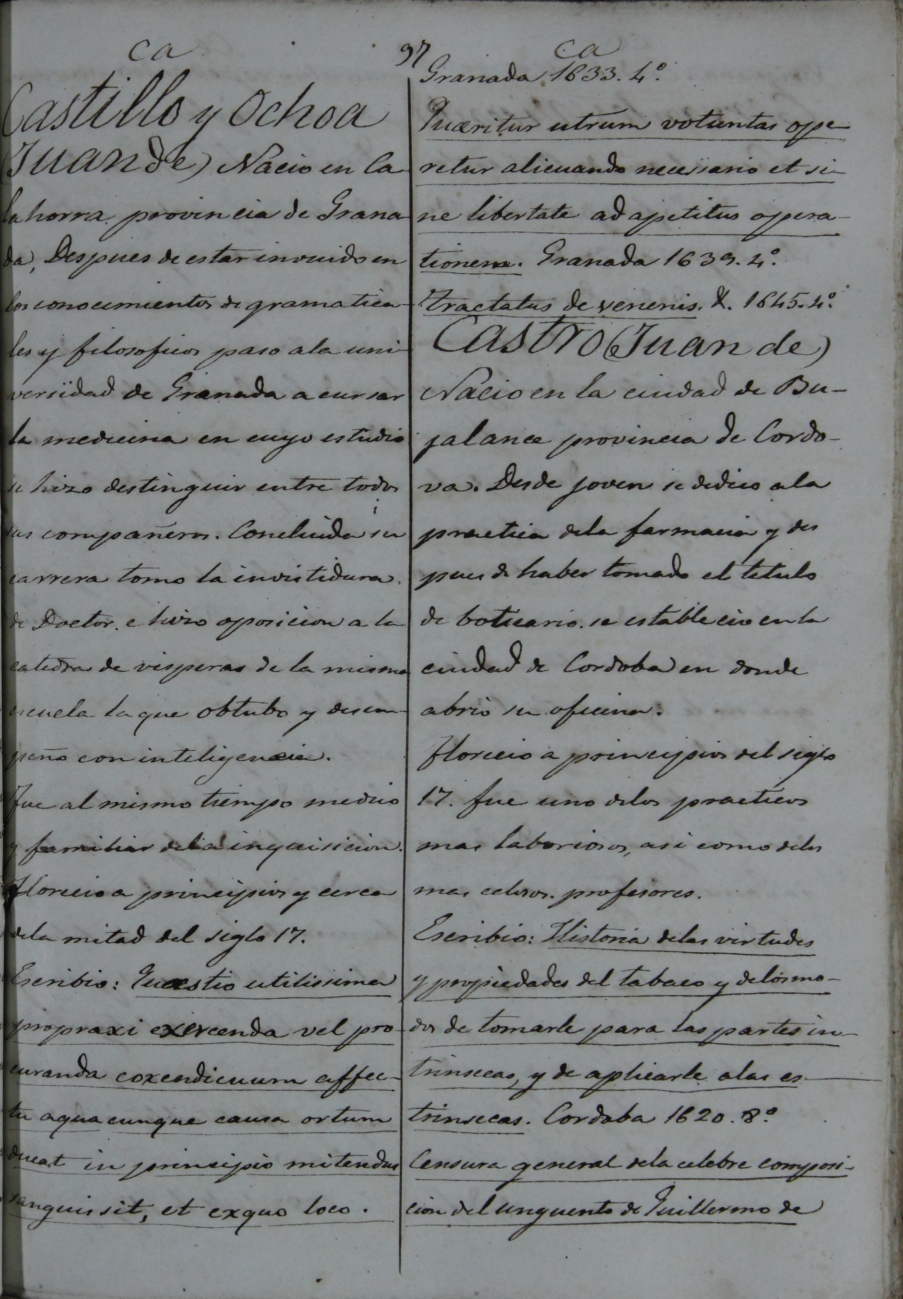 ca
97
Castillo y Ochoa
(Juan de) Nacio en Ca
lahorra, provincia de Grana
da, Despues de estar invuido en
los conocimientos de gramatica
les y filosoficos paso ala uni
versidad de Granada a cursar
la medicina en cuyo estudio
se hizo destinguir entre todos
sus compañeros. Concluida su
carrera tomo la invistidura
de Doctor e hizo oposicion a la
catedra de visperas de la misma
escuela la que obtubo y desem-
peño con inteligencia.
Fue al mismo tiempo medico
y familiar dela inquisicion.
Florecio a principios y cerca
dela mitad del siglo 17.
Escribio: Quæstio utilissima
propraxi exercenda vel pro
curanda coxendicuum affec-
tu aqua cunque causa ortum
ducat in principio mitendus
sanguis sit, et exquo loco.
ca
Granada 1633. 4º.
Quæritur utrum voluntas ope-
retur alicuando necessario et si-
ne libertate ad apetitus opera-
tionem. Granada 1639. 4º.
Tractatus de venenis. &. 1645. 4º.
Castro (Juan de)
Nacio en la ciudad de Bu-
jalance provincia de Cordo-
va. Desde joven se dedico ala
practica dela farmacia y des
pues de haber tomado el titulo
de boticario. se establecio en la
ciudad de Cordoba en donde
abrio su oficina.
Florecio a principios del siglo
17. fue uno delos practicos
mas laboriosos, asi como delos
mas celosos profesores.
Escribio: Historia delas virtudes
y propiedades del tabaco y delos mo-
dos de tomarle para las partes in-
trinsecas, y de aplicarle alas es-
trinsecas. Cordoba 1620. 8º
Censura general dela celebre composi-
cion del unguento de Guillermo de